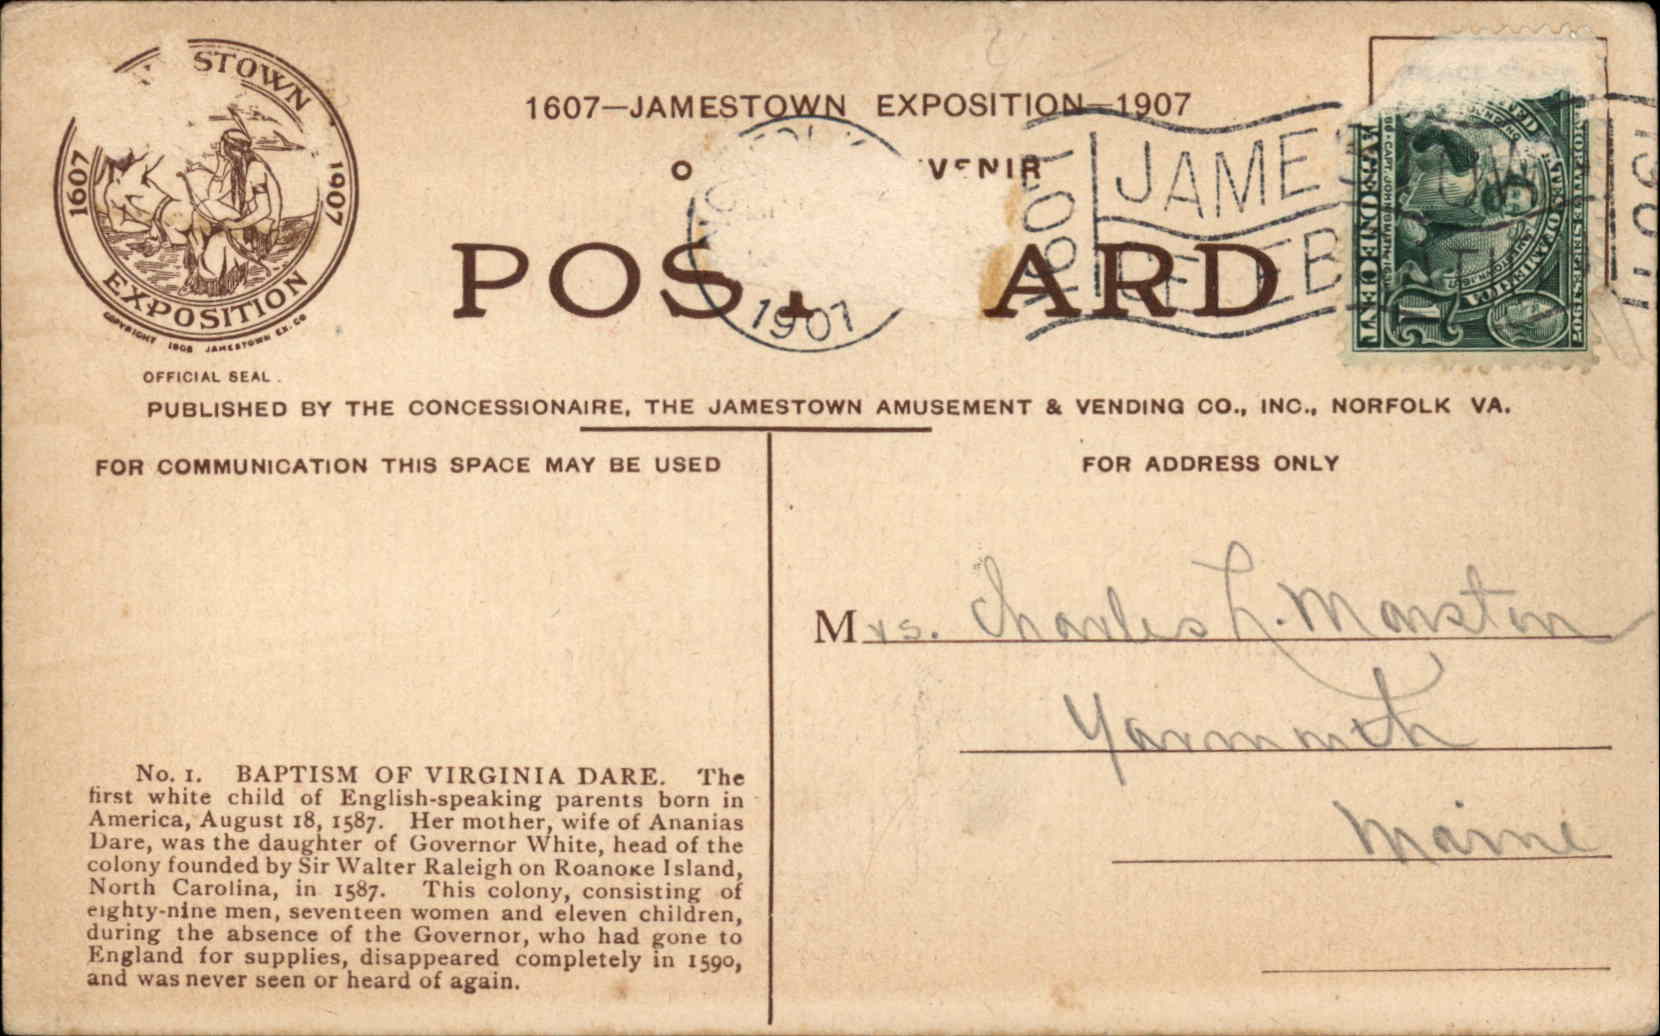 STOWN
1607
1907
EXPOSITION
COPYRIGHT 1906 JAMESTOWN EX. CO
OFFICIAL SEAL.
1607—JAMESTOWN EXPOSITION—1907
POS ARD
1907
JAMES
1607
POSTAGE
1
PUBLISHED BY THE CONCESSIONAIRE, THE JAMESTOWN AMUSEMENT & VENDING CO., INC., NORFOLK VA.
FOR COMMUNICATION THIS SPACE MAY BE USED
FOR ADDRESS ONLY
Mrs. Charles L. Marston
Yarmouth
Maine
No. 1. BAPTISM OF VIRGINIA DARE. The
first white child of English-speaking parents born in
America, August 18, 1587. Her mother, wife of Ananias
Dare, was the daughter of Governor White, head of the
colony founded by Sir Walter Raleigh on Roanoke Island,
North Carolina, in 1587. This colony, consisting of
eighty-nine men, seventeen women and eleven children,
during the absence of the Governor, who had gone to
England for supplies, disappeared completely in 1590,
and was never seen or heard of again.